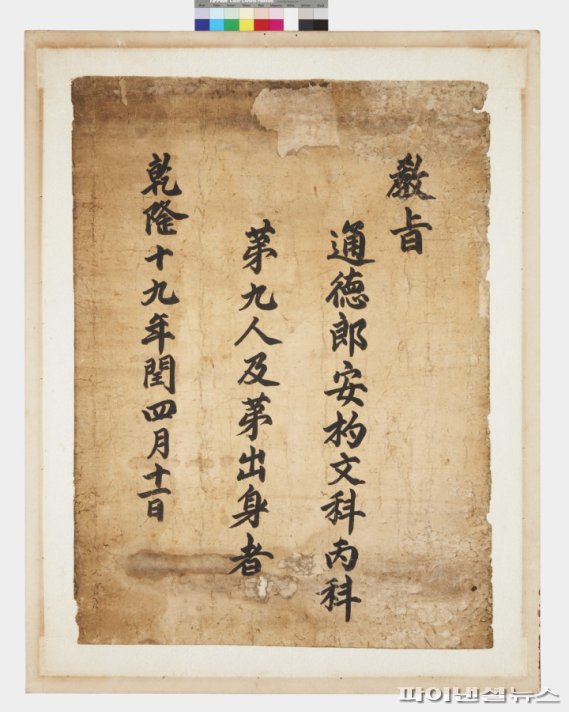 敎旨
通德郎安杓文科丙科
第九人及第出身者
乾隆十九年閏四月十一日
파이낸셜뉴스